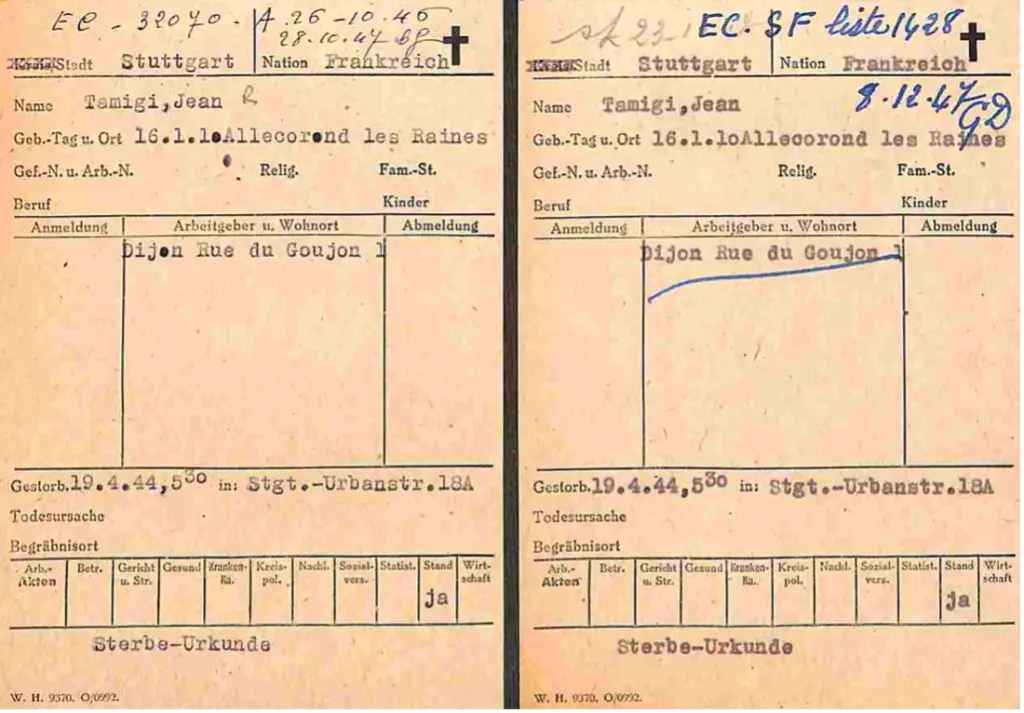 EC - 32070. A. 26-10.46
28.10.47
Kreis/Stadt Stuttgart Nation Frankreich
Name Tamigi, Jean R
Geb.-Tag u. Ort 16.1.10 Allecorond les Raines
Gef.-N. u. Arb.-N. Relig. Fam.-St.
Beruf Kinder
Anmeldung Arbeitgeber u. Wohnort Abmeldung
Dijon Rue du Goujon 1
Gestorb. 19.4.44, 5 30 in: Stgt.-Urbanstr.18A
Todesursache
Begräbnisort
Arb.-Akten Betr. Gericht u. Str. Gesund Kranken-Ka. Kreis-pol. Nachl. Sozial-vers. Statist. Stand Wirt-schaft
ja
Sterbe-Urkunde
W. H. 9370. O/0992.
EC. SF liste 1428
Kreis/Stadt Stuttgart Nation Frankreich
Name Tamigi, Jean 8.12.47
GD
Geb.-Tag u. Ort 16.1.10 Allecorond les Raines
Gef.-N. u. Arb.-N. Relig. Fam.-St.
Beruf Kinder
Anmeldung Arbeitgeber u. Wohnort Abmeldung
Dijon Rue du Goujon 1
Gestorb. 19.4.44, 5 30 in: Stgt.-Urbanstr.18A
Todesursache
Begräbnisort
Arb.-Akten Betr. Gericht u. Str. Gesund Kranken-Ka. Kreis-pol. Nachl. Sozial-vers. Statist. Stand Wirt-schaft
ja
Sterbe-Urkunde
W. H. 9370. O/0992.